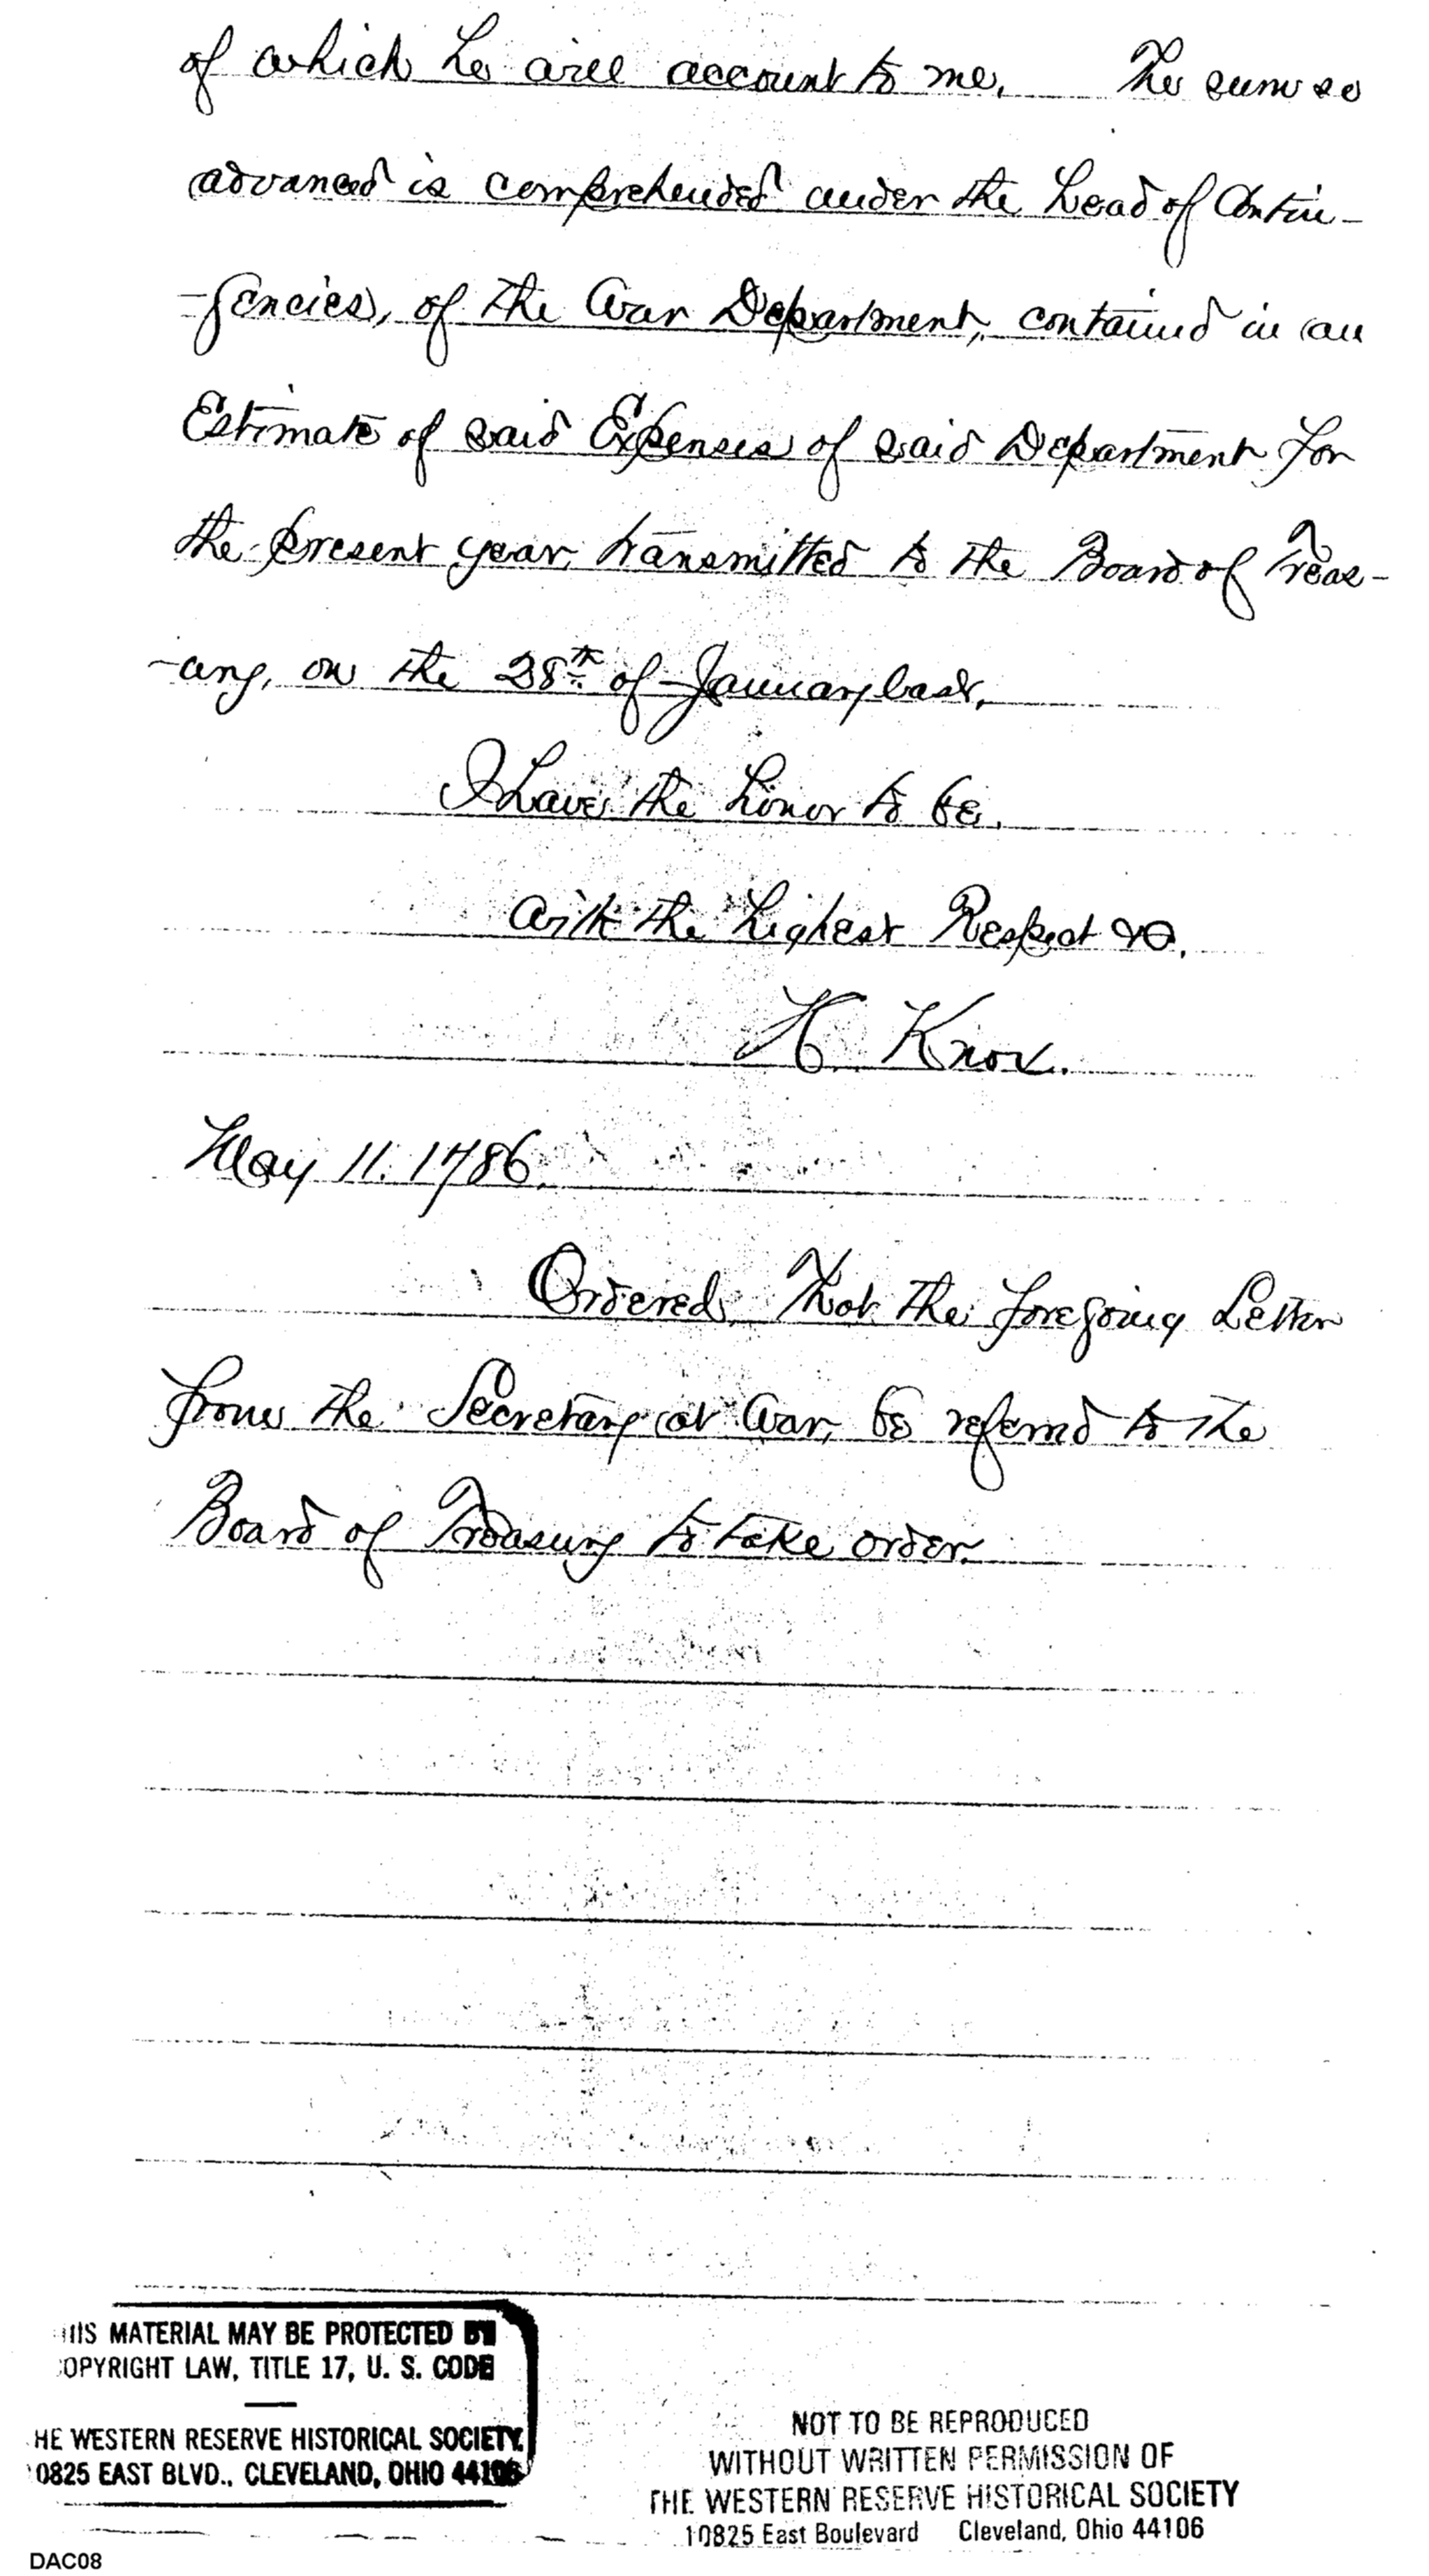 of which he will account to me. The sum so
advanced is comprehended under the head of Contin-
-gencies, of the War Department, contained in an
Estimate of said Expenses of said Department for
the present year, transmitted to the Board of Treas-
-ury, on the 28th of January last.
I have the honor to be,
with the highest Respect &c.
H Knox.
May 11. 1786.
Ordered, That the foregoing Letter
from the Secretary at War, be referred to the
Board of Treasury to take order.
HIS MATERIAL MAY BE PROTECTED BY
OPYRIGHT LAW, TITLE 17, U. S. CODE
HE WESTERN RESERVE HISTORICAL SOCIETY
0825 EAST BLVD., CLEVELAND, OHIO 44106
NOT TO BE REPRODUCED
WITHOUT WRITTEN PERMISSION OF
THE WESTERN RESERVE HISTORICAL SOCIETY
10825 East Boulevard Cleveland, Ohio 44106
DAC08